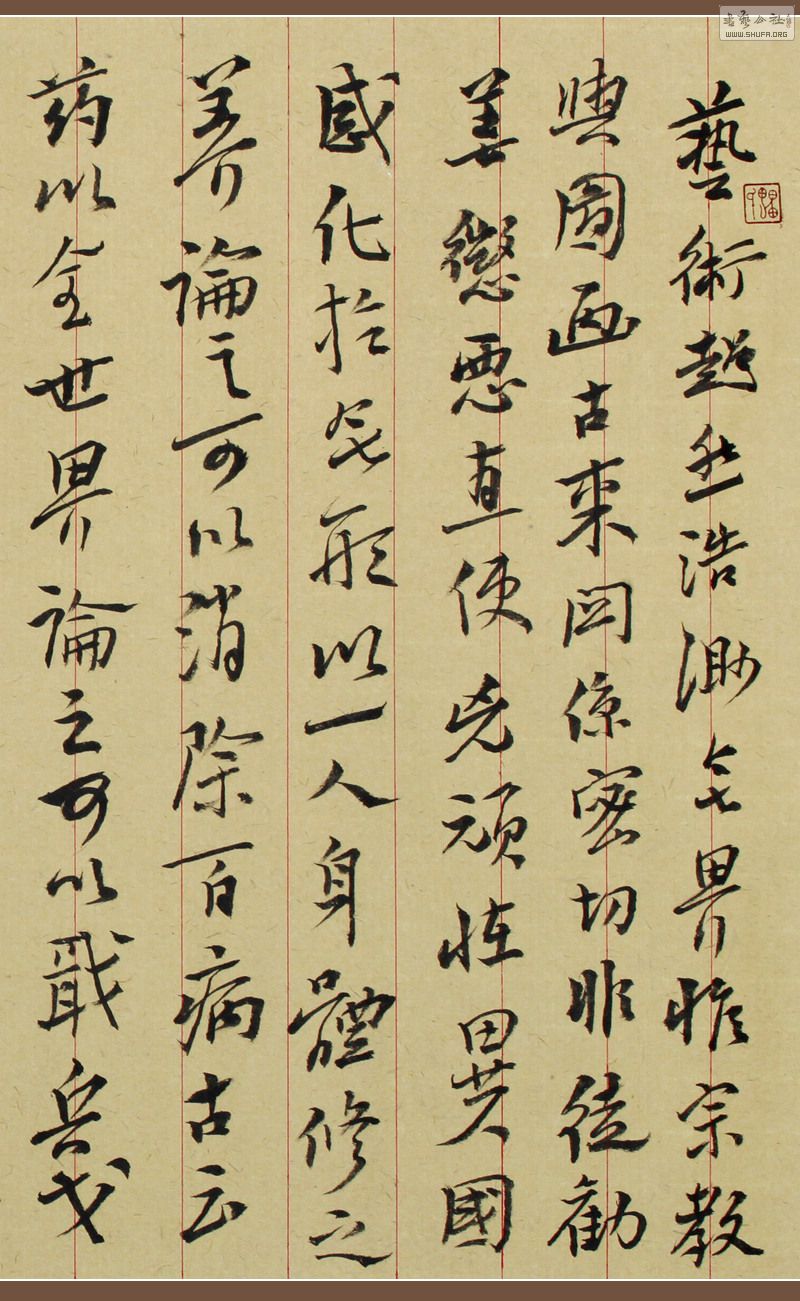 藝術超然浩渺無界惟宗教
與圖画古来関係密切非徒勸
善懲惡直使兇頑性異國
感化於無形以一人身體修之
养論之可以消除百病古云
药以全世界論之可以戢兵戈
书艺公社
WWW.SHUFA.ORG